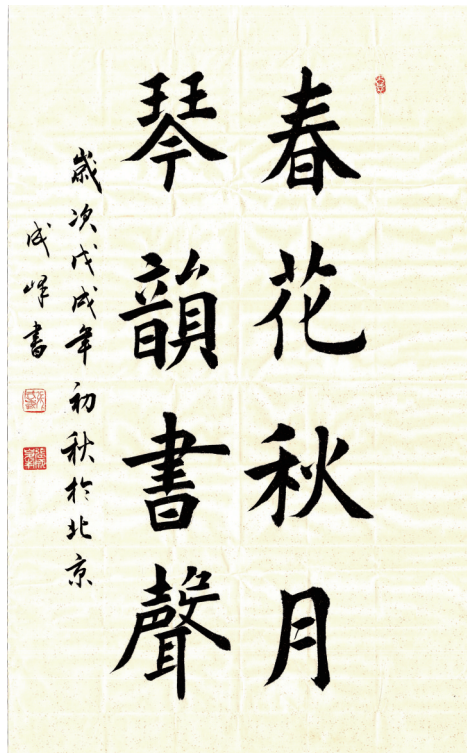 春花秋月
琴韻書聲
歲次戊戌年初秋於北京
成峰書